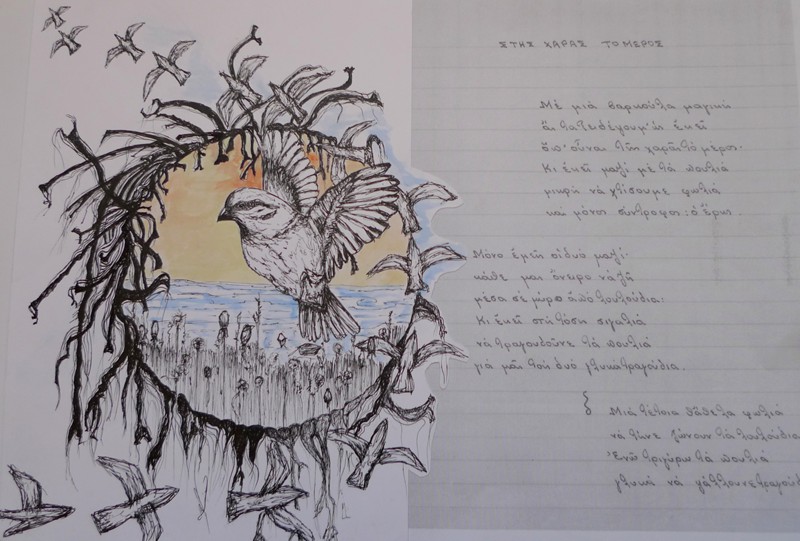 ΣΤΗΣ ΧΑΡΑΣ ΤΟ ΜΕΡΟΣ
Μὲ μιὰ βαρκούλα μαγικὴ
ἂς ταξιδέψουμ' ὡς ἐκεῖ
ποὖναι τῆς χαρᾶς τὸ μέρος.
Κι ἐκεῖ μαζὶ μὲ τὰ πουλιὰ
μικρὴ νὰ χτίσουμε φωλιὰ
καὶ μόνος σύντροφος: ὁ ἔρως.
Μόνο ἐμεῖς οἱ δυὸ μαζὶ
κάθε μας ὄνειρο νὰ ζῆ
μέσα σὲ μύρο ἀπὸ λουλούδια.
Κι ἐκεῖ στὴ τόση σιγαλιὰ
νὰ τραγουδοῦνε τὰ πουλιὰ
γιὰ μᾶς τοὺς δυὸ γλυκὰ τραγούδια.
Μιὰ τέτοια θἄθελα φωλιὰ
νὰ τήνε ζώνουν τὰ λουλούδια
Ἐνῶ τριγύρω τὰ πουλιὰ
γλυκὰ νὰ ψάλλουνε